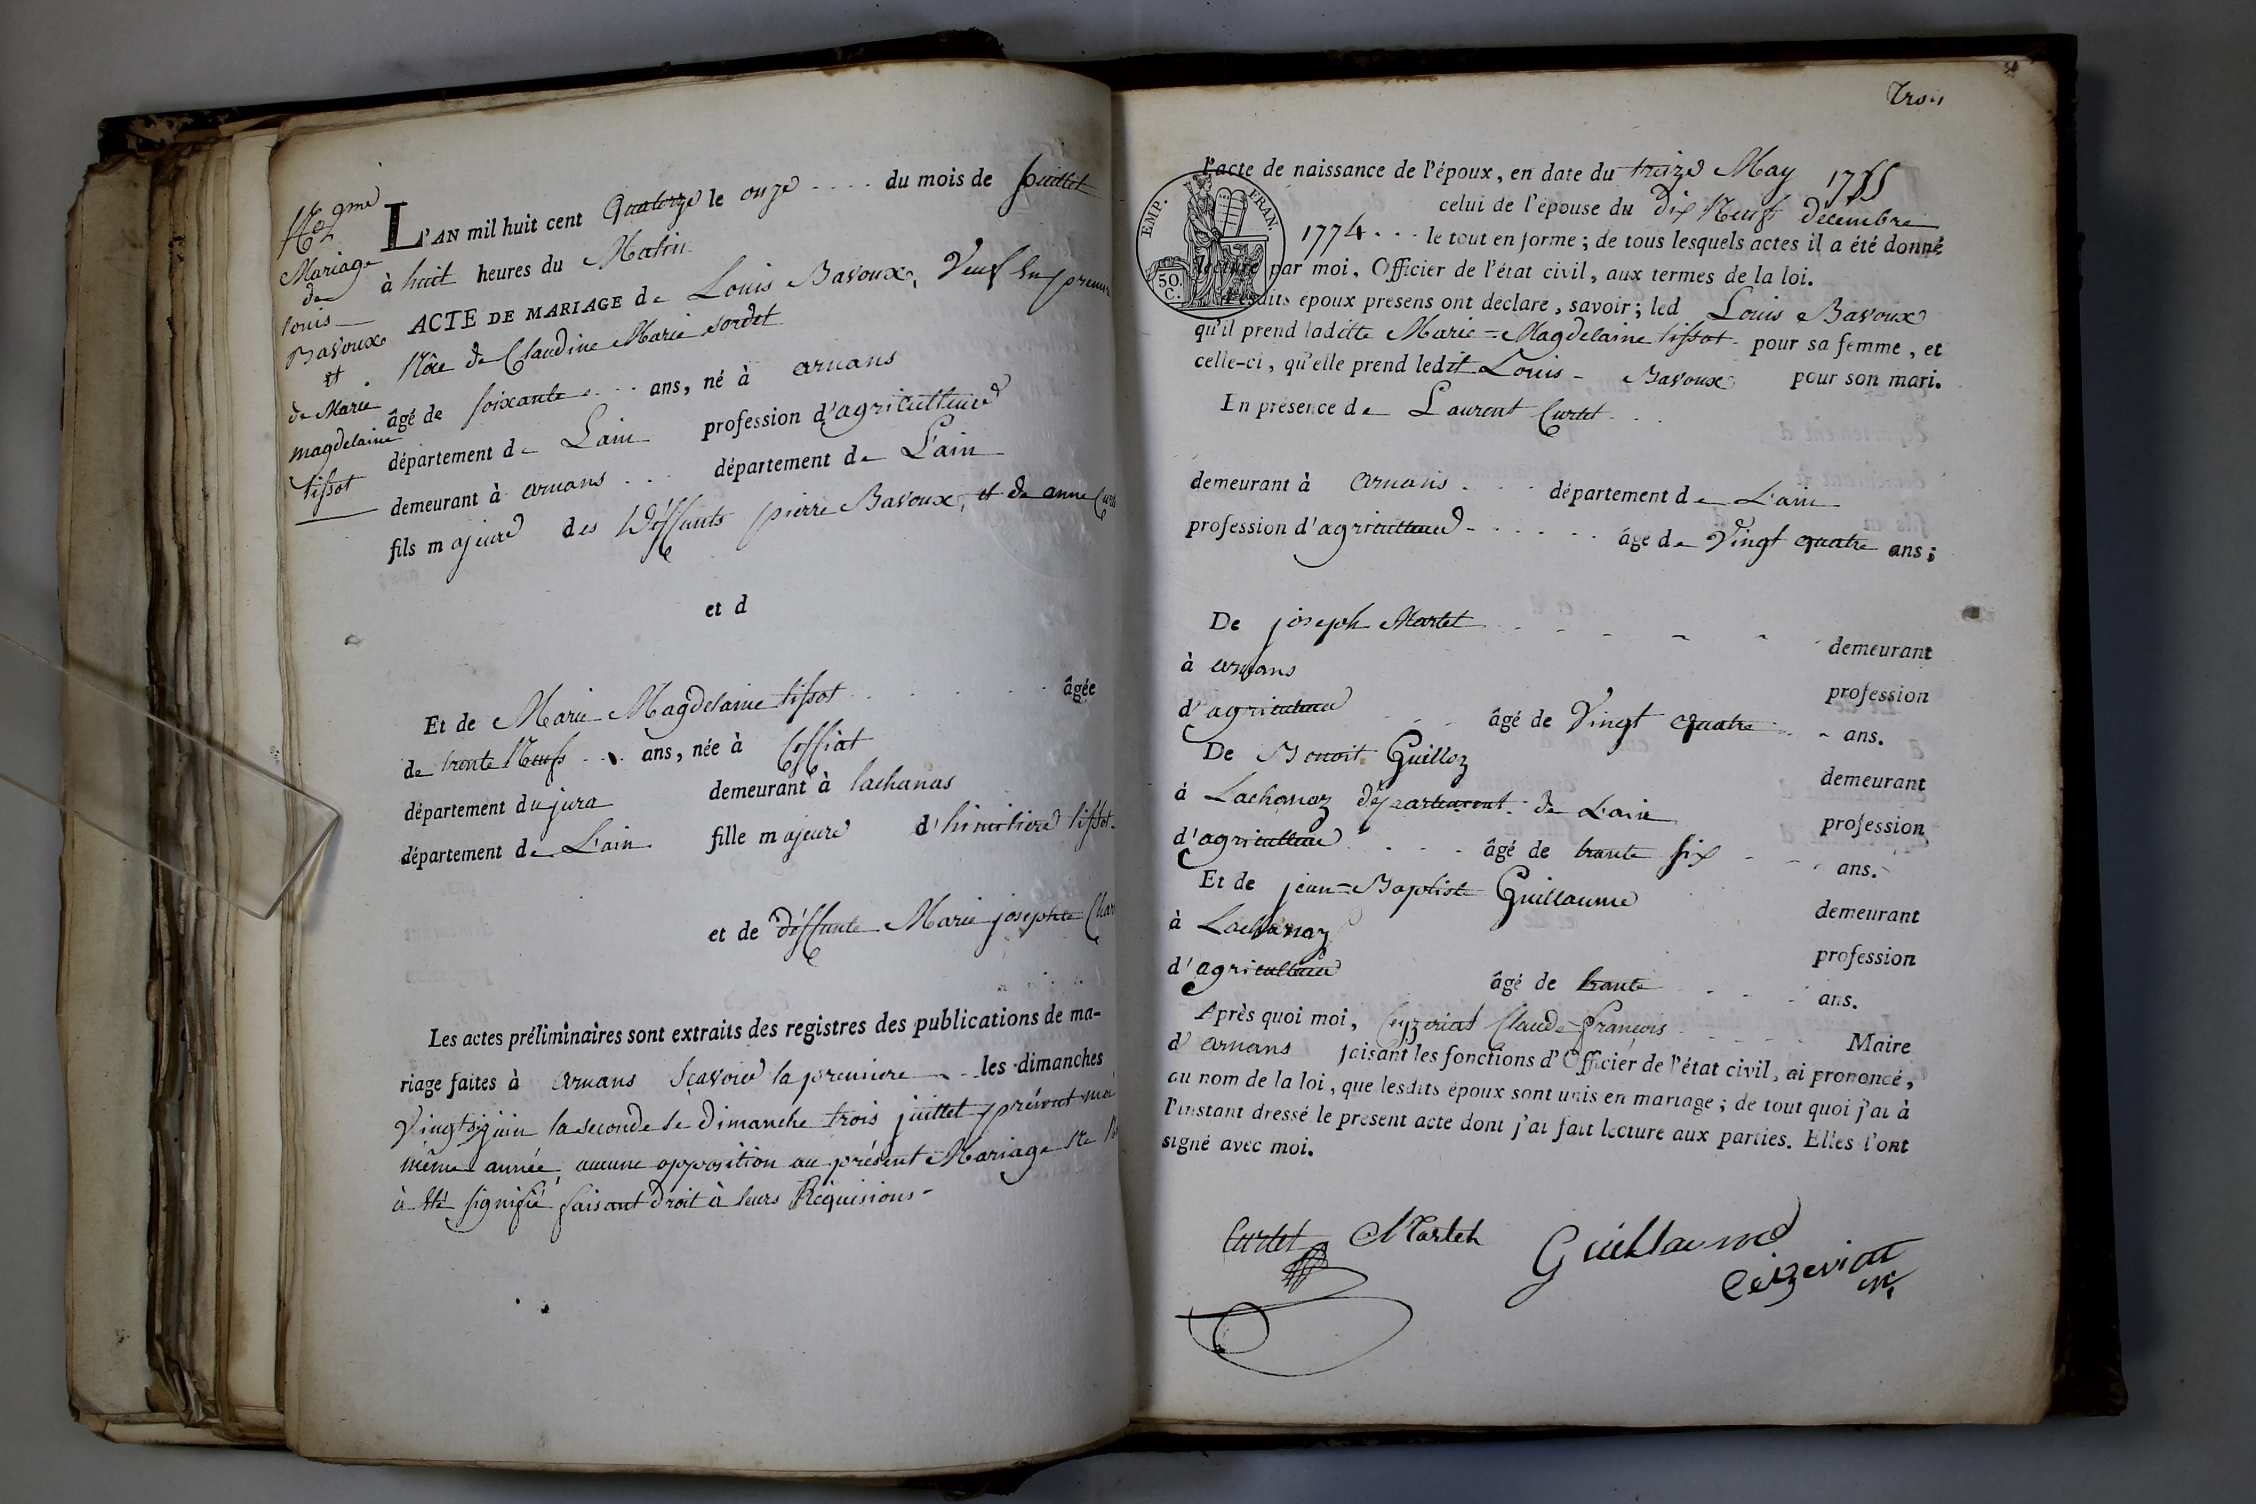 Mariage
de
louis
Bavoux
et
de Marie
magdelaine
tissot
L'AN mil huit cent Quatorze le onze du mois de Juillet
à huit heures du Matin
ACTE DE MARIAGE de Louis Bavoux, Veuf En premier
Nôce de Claudine Marie sordet
âgé de soixante ans, né à arnans
département de Lain profession d'agriculteur
demeurant à arnans département de L'ain
fils majeur des Déffunts pierre Bavoux, et de anne
et d
Et de Marie Magdelaine tissot âgée
de trente Neuf ans, née à Cessiat
département du jura demeurant à lachanas
département de L'ain fille majeure d' tissot
et de déffunte Marie josephte
Les actes préliminaires sont extraits des registres des publications de ma-
riage faites à arnans Scavoir la premiere les dimanches
Vingtsix juin la seconde le Dimanche trois juillet présent moi
même année, aucune opposition au présent Mariage Ne
à Eté signifié faisant droit à leurs Réquisions
Trois
l'acte de naissance de l'époux, en date du treize May 1755
celui de l'épouse du dix Neuf décembre
1774 le tout en forme ; de tous lesquels actes il a été donné
lecture par moi, Officier de l'état civil, aux termes de la loi.
Lesdits époux présens ont déclaré, savoir ; led Louis Bavoux
qu'il prend laditte Marie=Magdelaine tissot pour sa femme, et
celle-ci, qu'elle prend ledit Louis Bavoux pour son mari.
En présence de Laurent Curtet
demeurant à arnans département de L'ain
profession d'agriculteur âgé de Vingt quatre ans ;
De joseph Martet demeurant
à arnans profession
d'agriculteur âgé de Vingt quatre ans.
De Benoit Guilloz demeurant
à Lachanaz département de L'ain profession
d'agriculteur âgé de trante six ans.
Et de jean=Baptiste Guillaume demeurant
à Lachanaz profession
d'agriculteur âgé de trante ans.
Après quoi moi, Ceyzeriat Claude françois Maire
d'arnans faisant les fonctions d'Officier de l'état civil, ai prononcé,
au nom de la loi, que lesdits époux sont unis en mariage ; de tout quoi j'ai à
l'instant dressé le présent acte dont j'ai fait lecture aux parties. Elles l'ont
signé avec moi.
EMP. FRAN.
50.
C.
Curtet Martet Guillaume
Ceizeriat